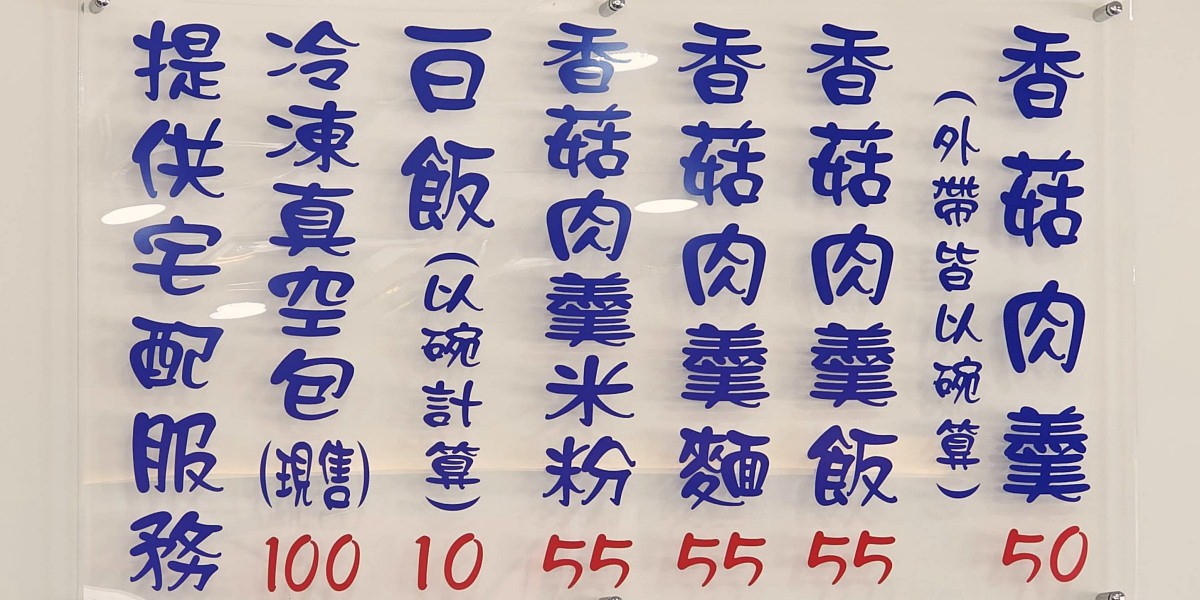 香菇肉羹 50
(外帶皆以碗算)
香菇肉羹飯 55
香菇肉羹麵 55
香菇肉羹米粉 55
白飯(以碗計算) 10
冷凍真空包(現售) 100
提供宅配服務